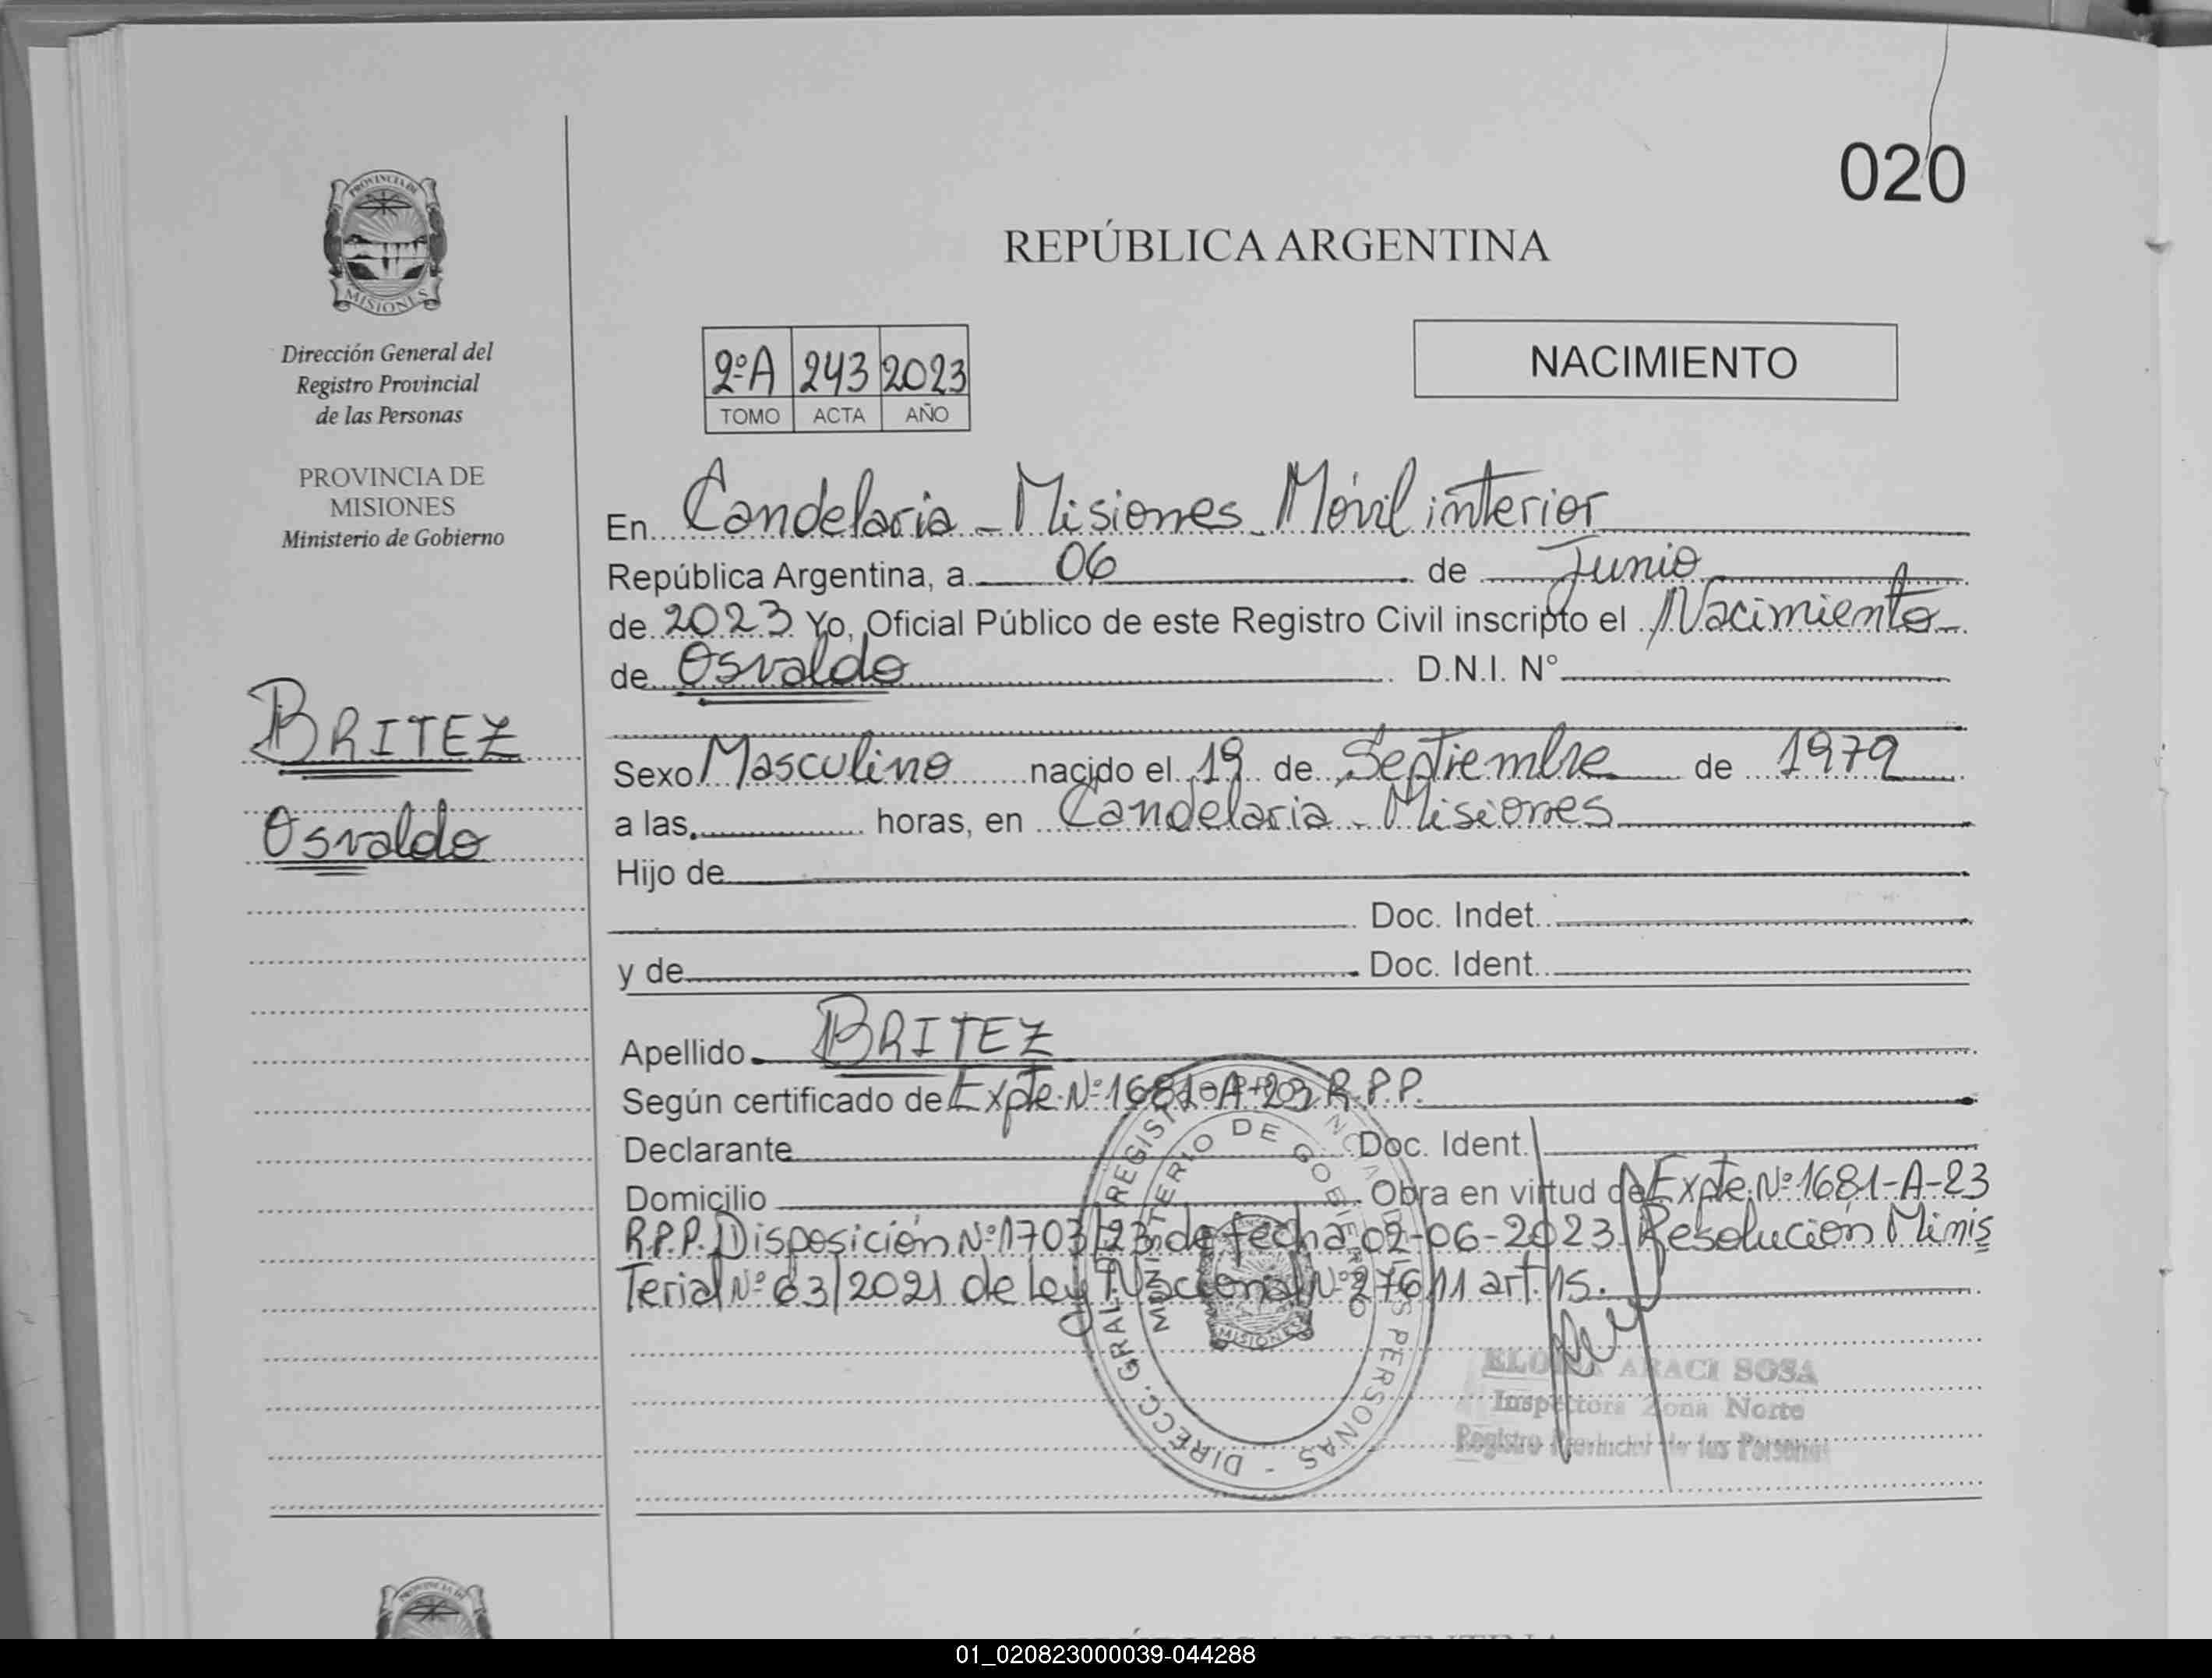 020
PROVINCIA DE
MISIONES
REPÚBLICA ARGENTINA
Dirección General del
Registro Provincial
de las Personas
PROVINCIA DE
MISIONES
Ministerio de Gobierno
2ºA 243 2023
TOMO ACTA AÑO
NACIMIENTO
En Candelaria - Misiones Móvil interior
República Argentina, a 06 de Junio
de 2023 Yo, Oficial Público de este Registro Civil inscripto el Nacimiento
de Osvaldo D.N.I. N°
BRITEZ
Osvaldo
Sexo Masculino nacido el 19 de Septiembre de 1979
a las horas, en Candelaria - Misiones
Hijo de
Doc. Indet.
y de Doc. Ident.
Apellido BRITEZ
Según certificado de Expte. Nº 1681-A-23 R.P.P.
Declarante Doc. Ident.
Domicilio Obra en virtud de Expte. Nº 1681-A-23
R.P.P. Disposición Nº 1703/23 de fecha 02-06-2023 Resolución Minis
Terial Nº 63/2021 de Ley Nacional Nº 27611 art. 15.
DIRECC. GRAL. REGIST PERSONAS -
MINISTERIO DE GOBIERNO
MISIONES
ARACI SOSA
Inspectora Zona Norte
Registro Provincial de las Personas
01_020823000039-044288